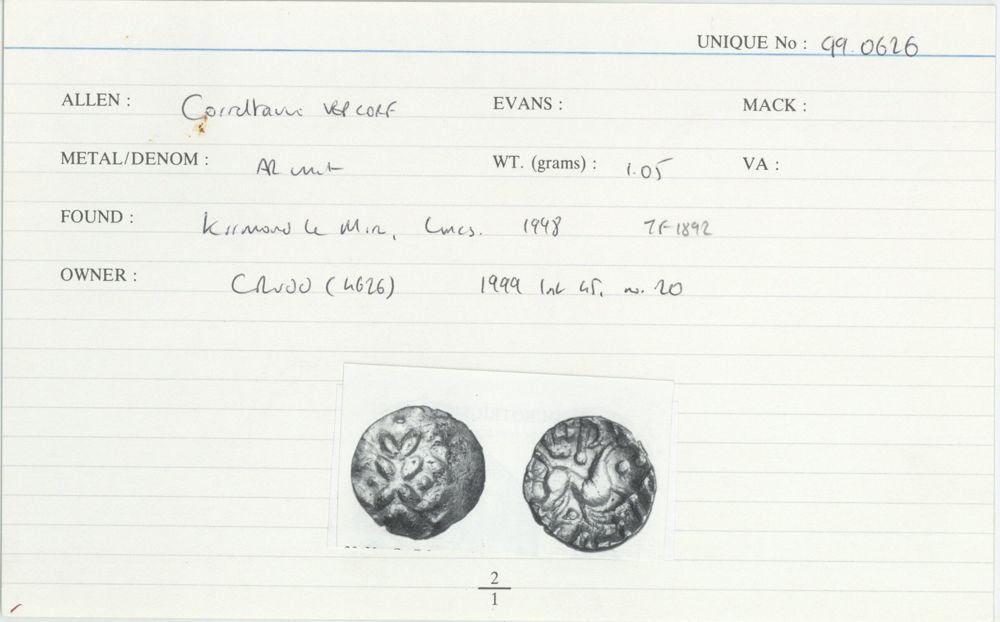 UNIQUE No : 99.0626
ALLEN : Corieltauvi VEP CORF EVANS : MACK :
METAL/DENOM : AR unit WT. (grams) : 1.05 VA :
FOUND : Kirmond Le Mire, Lincs. 1998 TF 1892
OWNER : CRUDO (4626) 1999 list 45, no. 20
2
1